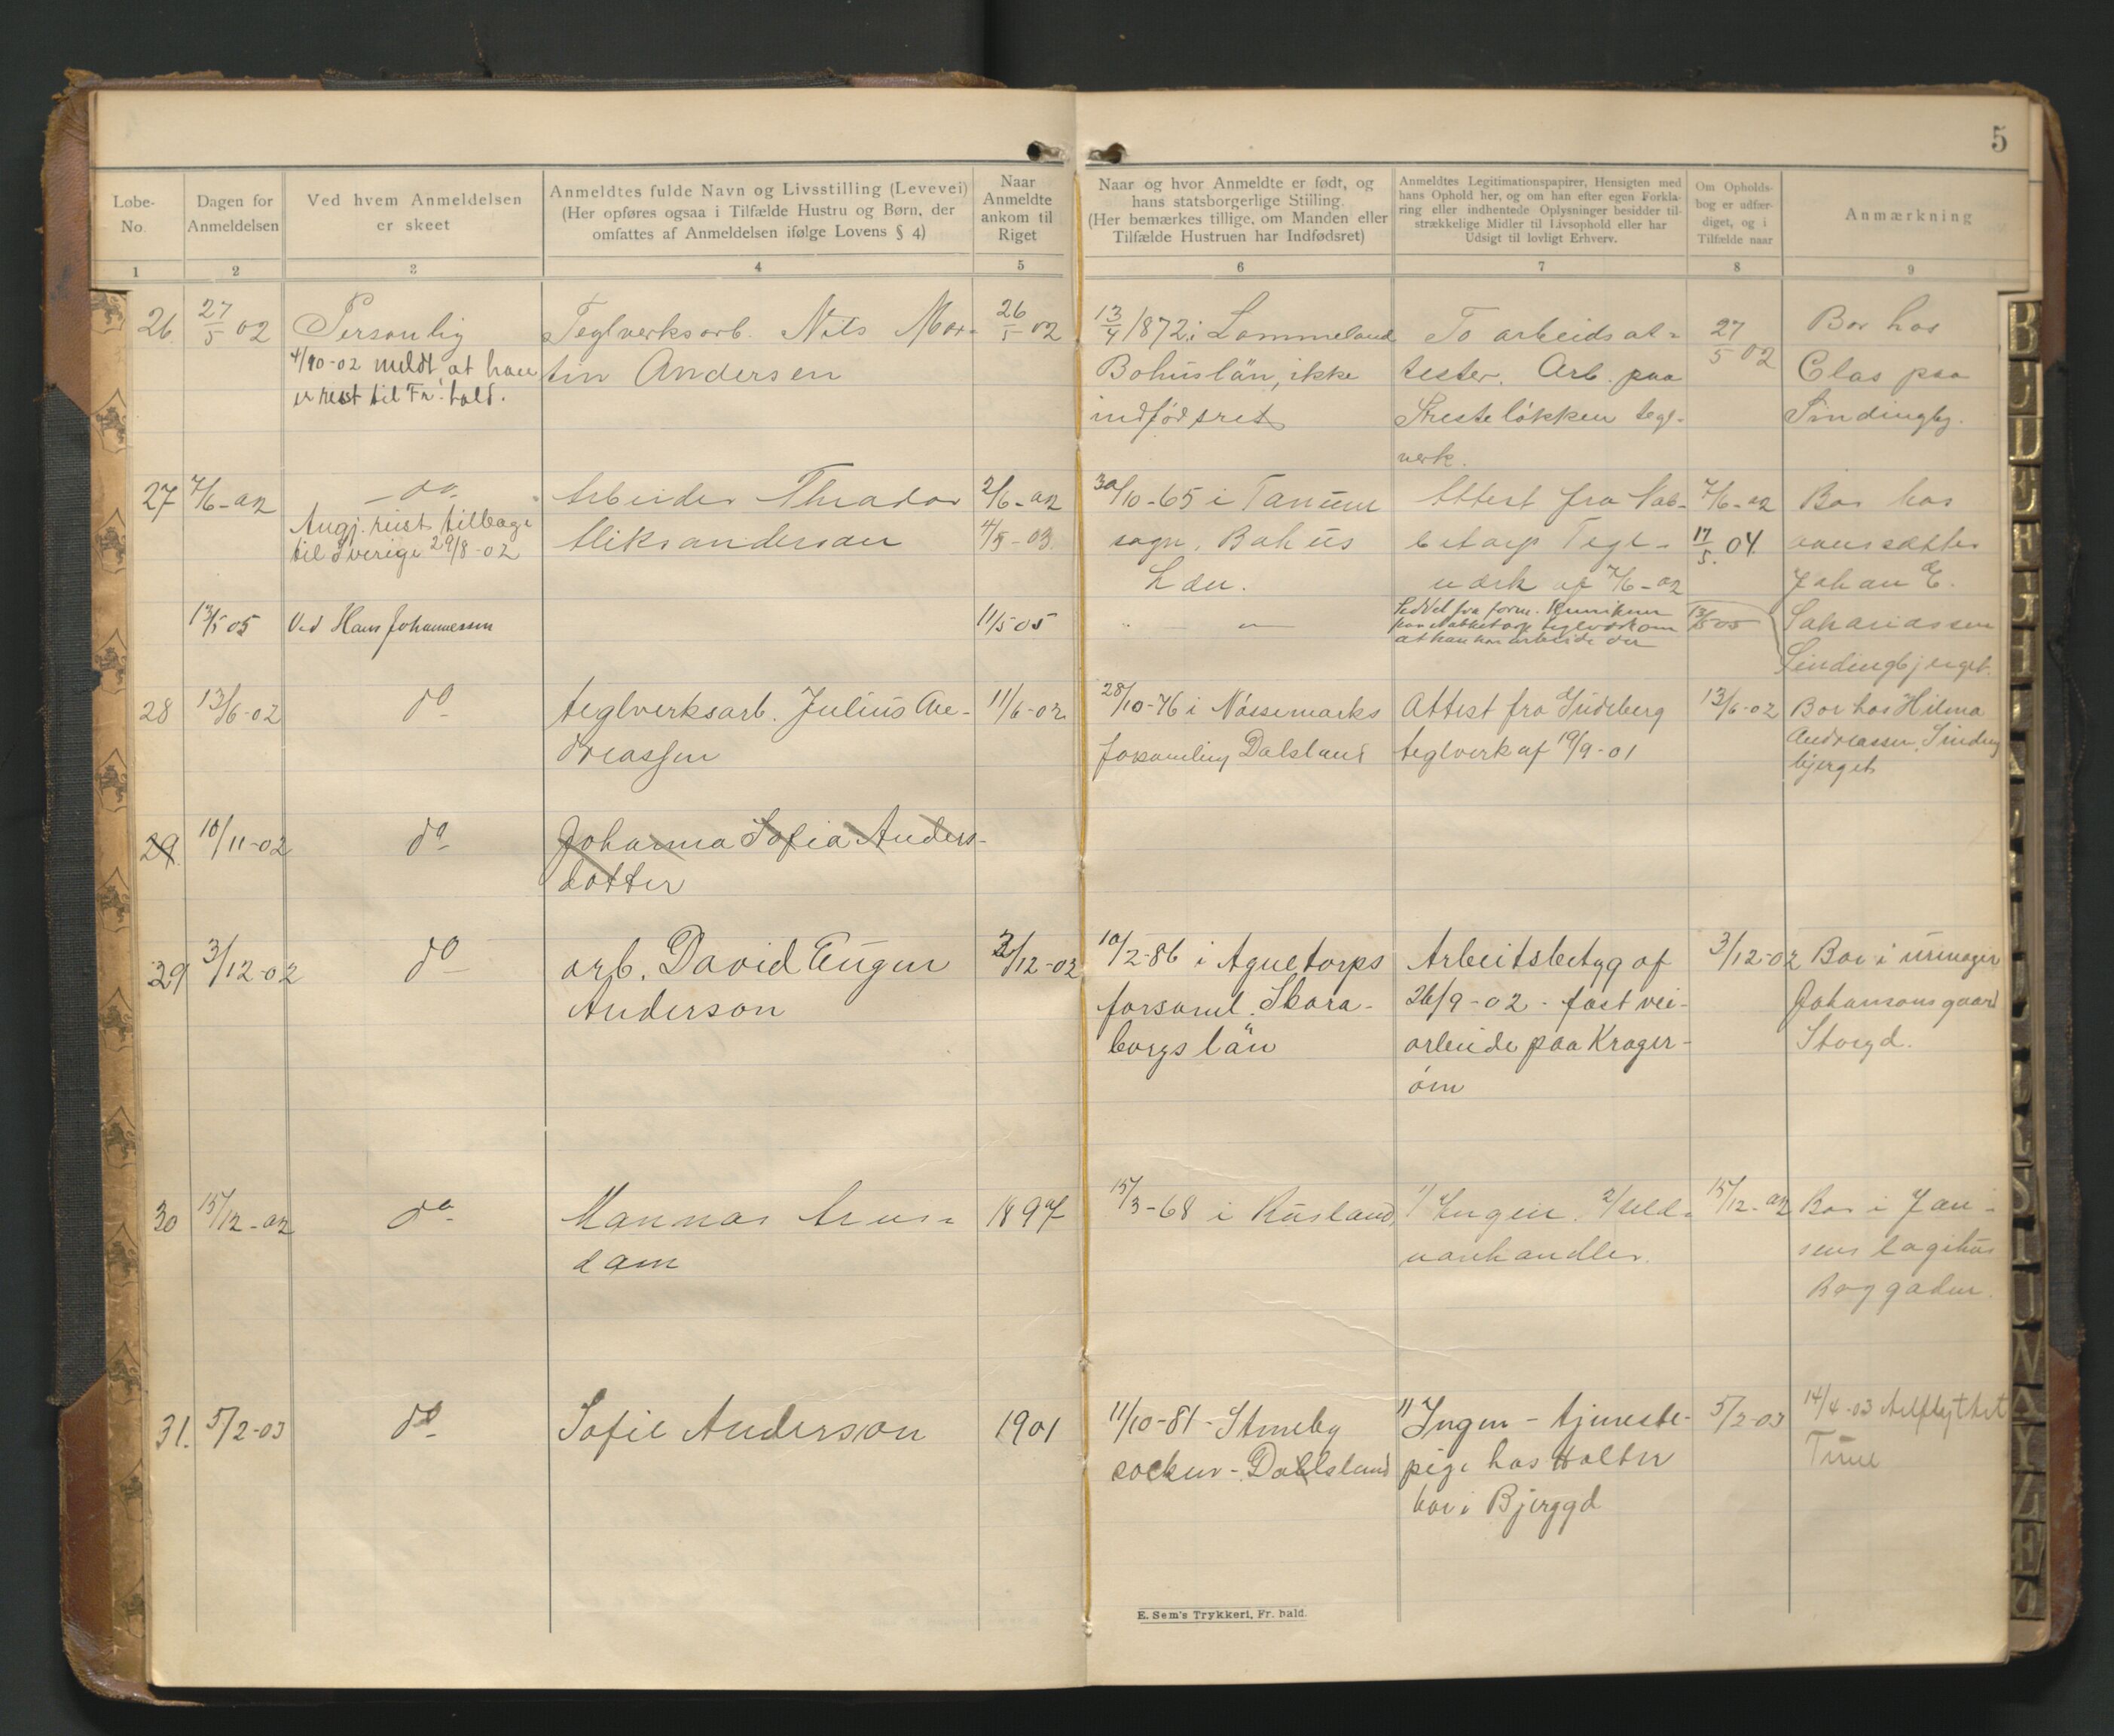 5
Løbe-
No.
Dagen for
Anmeldelsen
Ved hvem Anmeldelsen
er skeet
Anmeldtes fulde Navn og Livsstilling (Levevei)
(Her opføres ogsaa i Tilfælde Hustru og Børn, der
omfattes af Anmeldelsen ifølge Lovens § 4)
Naar
Anmeldte
ankom til
Riget
Naar og hvor Anmeldte er født, og
hans statsborgerlige Stiilling.
(Her bemærkes tillige, om Manden eller i
Tilfælde Hustruen har Indfødsret)
Anmeldtes Legitimationspapirer, Hensigten med
hans Ophold her, og om han efter egen Forkla-
ring eller indhentede Oplysninger besidder til-
strækkelige Midler til Livsophold eller har
Udsigt til lovligt Erhverv.
Om Opholds-
bog er udfær-
diget, og i
Tilfælde naar
Anmærkning
1 2 3 4 5 6 7 8 9
26. 27/5 02
Personlig
4/10-02 meldt at han
er reist til Fr.hald.
Teglverksarb. Nils Mar-
tin Andersen
26/5 02
13/4 1872 i Lommeland
Bohuslän, ikke
indfødsret
To arbeidsat-
tester. Arb. paa
teglv-
verk.
27/5 02
Bor hos
Clas paa
Sindingbg.
27 7/6-02
do
Angj. reist tilbage
til Sverige 29/8-02
Arbeider Theodor
Aleksandersen
2/6-02
4/5-03
30/10-65 i Tanum
sogn, Bohus
Län.
Attest fra Nab-
betorp Tegl-
værk af 7/6-02
7/6-02
17/5. 04
Bor hos
Johan E.
Sakariassen
Sindingbjerget.
13/5 05
Ved Hans Johannessen
11/5 05
" "
at han har arbeide der
13/5 05
28 13/6-02
do
teglverksarb. Julius An-
dreassen
11/6-02
28/10-76 i Nössemarks
forsamling Dalsland
Attest fra Gudeberg
teglverk af 19/9-01
13/6-02
Bor hos Hilma
Andreassen, Sinding
bjerget
29. 10/11-02
do
Johanna Sofia Anders-
dotter
29 3/12-02
do
arb. David Eugen
Anderson
2/12-02
10/2-86 i Agnetorps
forsaml. Skara-
borgs län
Arbeitsbetyg af
26/9-02 - fast vei-
arbeide paa Krager-
öen
3/12-02
Bor i urmager
Johansons gaard
Storgd.
30 15/12-02
do
Mannas Arus-
dam
1897
15/3-68 i Rusland
1/ Ingen. 2/ Uld-
varehandler.
15/12-02
Bor i Jan-
sens logihus
Ryggaden.
31. 5/2-03
do
Sofie Anderson
1901
11/10-81 - Steneby
socken - Dalsland
1/ Ingen - tjeneste-
pige hos Holter
bor i Bjerggd
5/2-03
14/4-03
E. Sem's Trykkeri, Fr. hald.
B
U
D
E
F
G
H